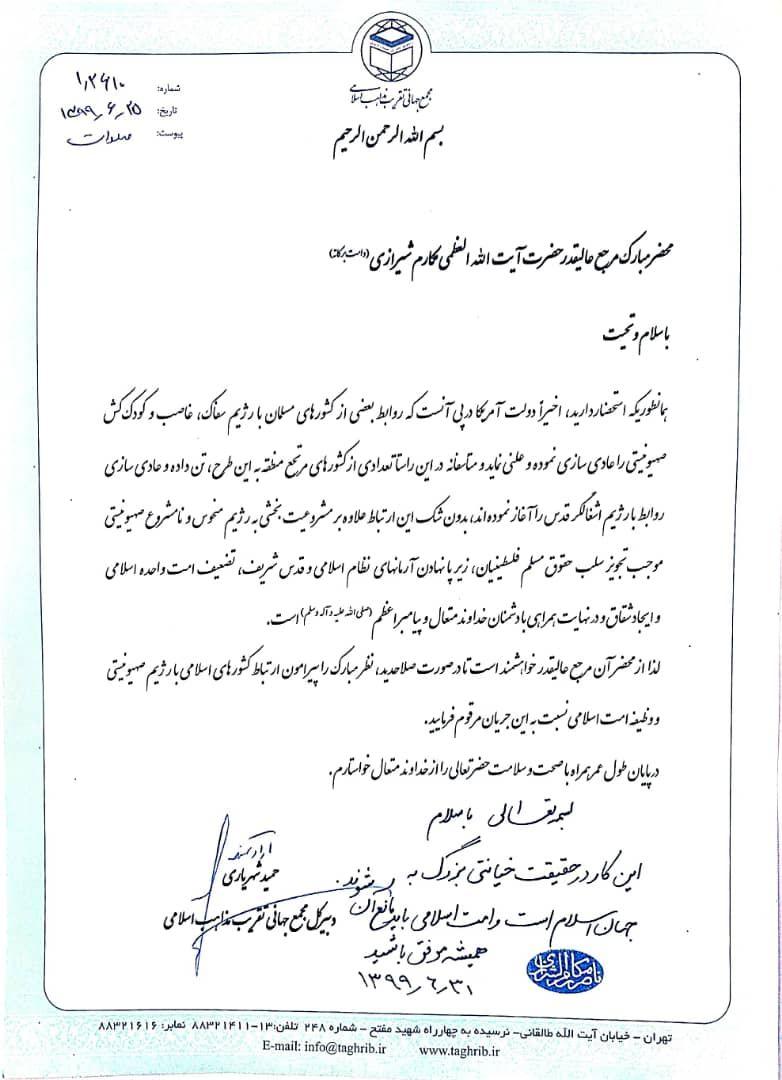 مجمع جهانی تقریب مذاهب اسلامی
شماره: ۱٫۲۶۱۰
تاریخ: ۱۳۹۹٫۶٫۲۵
پیوست:
بسم الله الرحمن الرحیم
محضر مبارک مرجع عالیقدر حضرت آیت الله العظمی مکارم شیرازی (دامت برکاته)
باسلام و تحیت
همانطوریکه استحضار دارید، اخیراً دولت آمریکا درپی آنست که روابط بعضی از کشورهای مسلمان با رژیم سفاک، غاصب و کودک کش
صهیونیستی را عادی سازی نموده و علنی نماید و متاسفانه در این راستا تعدادی از کشورهای مرتجع منطقه به این طرح، تن داده و عادی سازی
روابط با رژیم اشغالگر قدس را آغاز نموده اند، بدون شک این ارتباط علاوه بر مشروعیت بخشی به رژیم منحوس و نامشروع صهیونیستی
موجب تجویز سلب حقوق مسلم فلسطینیان، زیر پا نهادن آرمانهای نظام اسلامی و قدس شریف، تضعیف امت واحده اسلامی
و ایجاد شقاق و در نهایت همراهی با دشمنان خداوند متعال و پیامبر اعظم (صلی الله علیه و آله و سلم) است.
لذا از محضر آن مرجع عالیقدر خواهشمند است تا در صورت صلاحدید، نظر مبارک را پیرامون ارتباط کشورهای اسلامی با رژیم صهیونیستی
و وظیفه امت اسلامی نسبت به این جریان مرقوم فرمایید.
در پایان طول عمر همراه با صحت و سلامت حضرتعالی را از خداوند متعال خواستارم.
ارادتمند
حمید شهریاری
دبیرکل مجمع جهانی تقریب مذاهب اسلامی
بسمه تعالی باسلام
این کار در حقیقت خیانتی بزرگ به
جهان اسلام است و امت اسلامی باید مانع آن شوند.
همیشه موفق باشید
۱۳۹۹٫۶٫۳۱
ناصر مکارم الشیرازی
تهران – خیابان آیت الله طالقانی- نرسیده به چهارراه شهید مفتح – شماره ۲۴۸ تلفن:۱۳-۸۸۳۲۱۴۱۱ نمابر: ۸۸۳۲۱۶۱۶
E-mail: info@taghrib.ir www.taghrib.ir